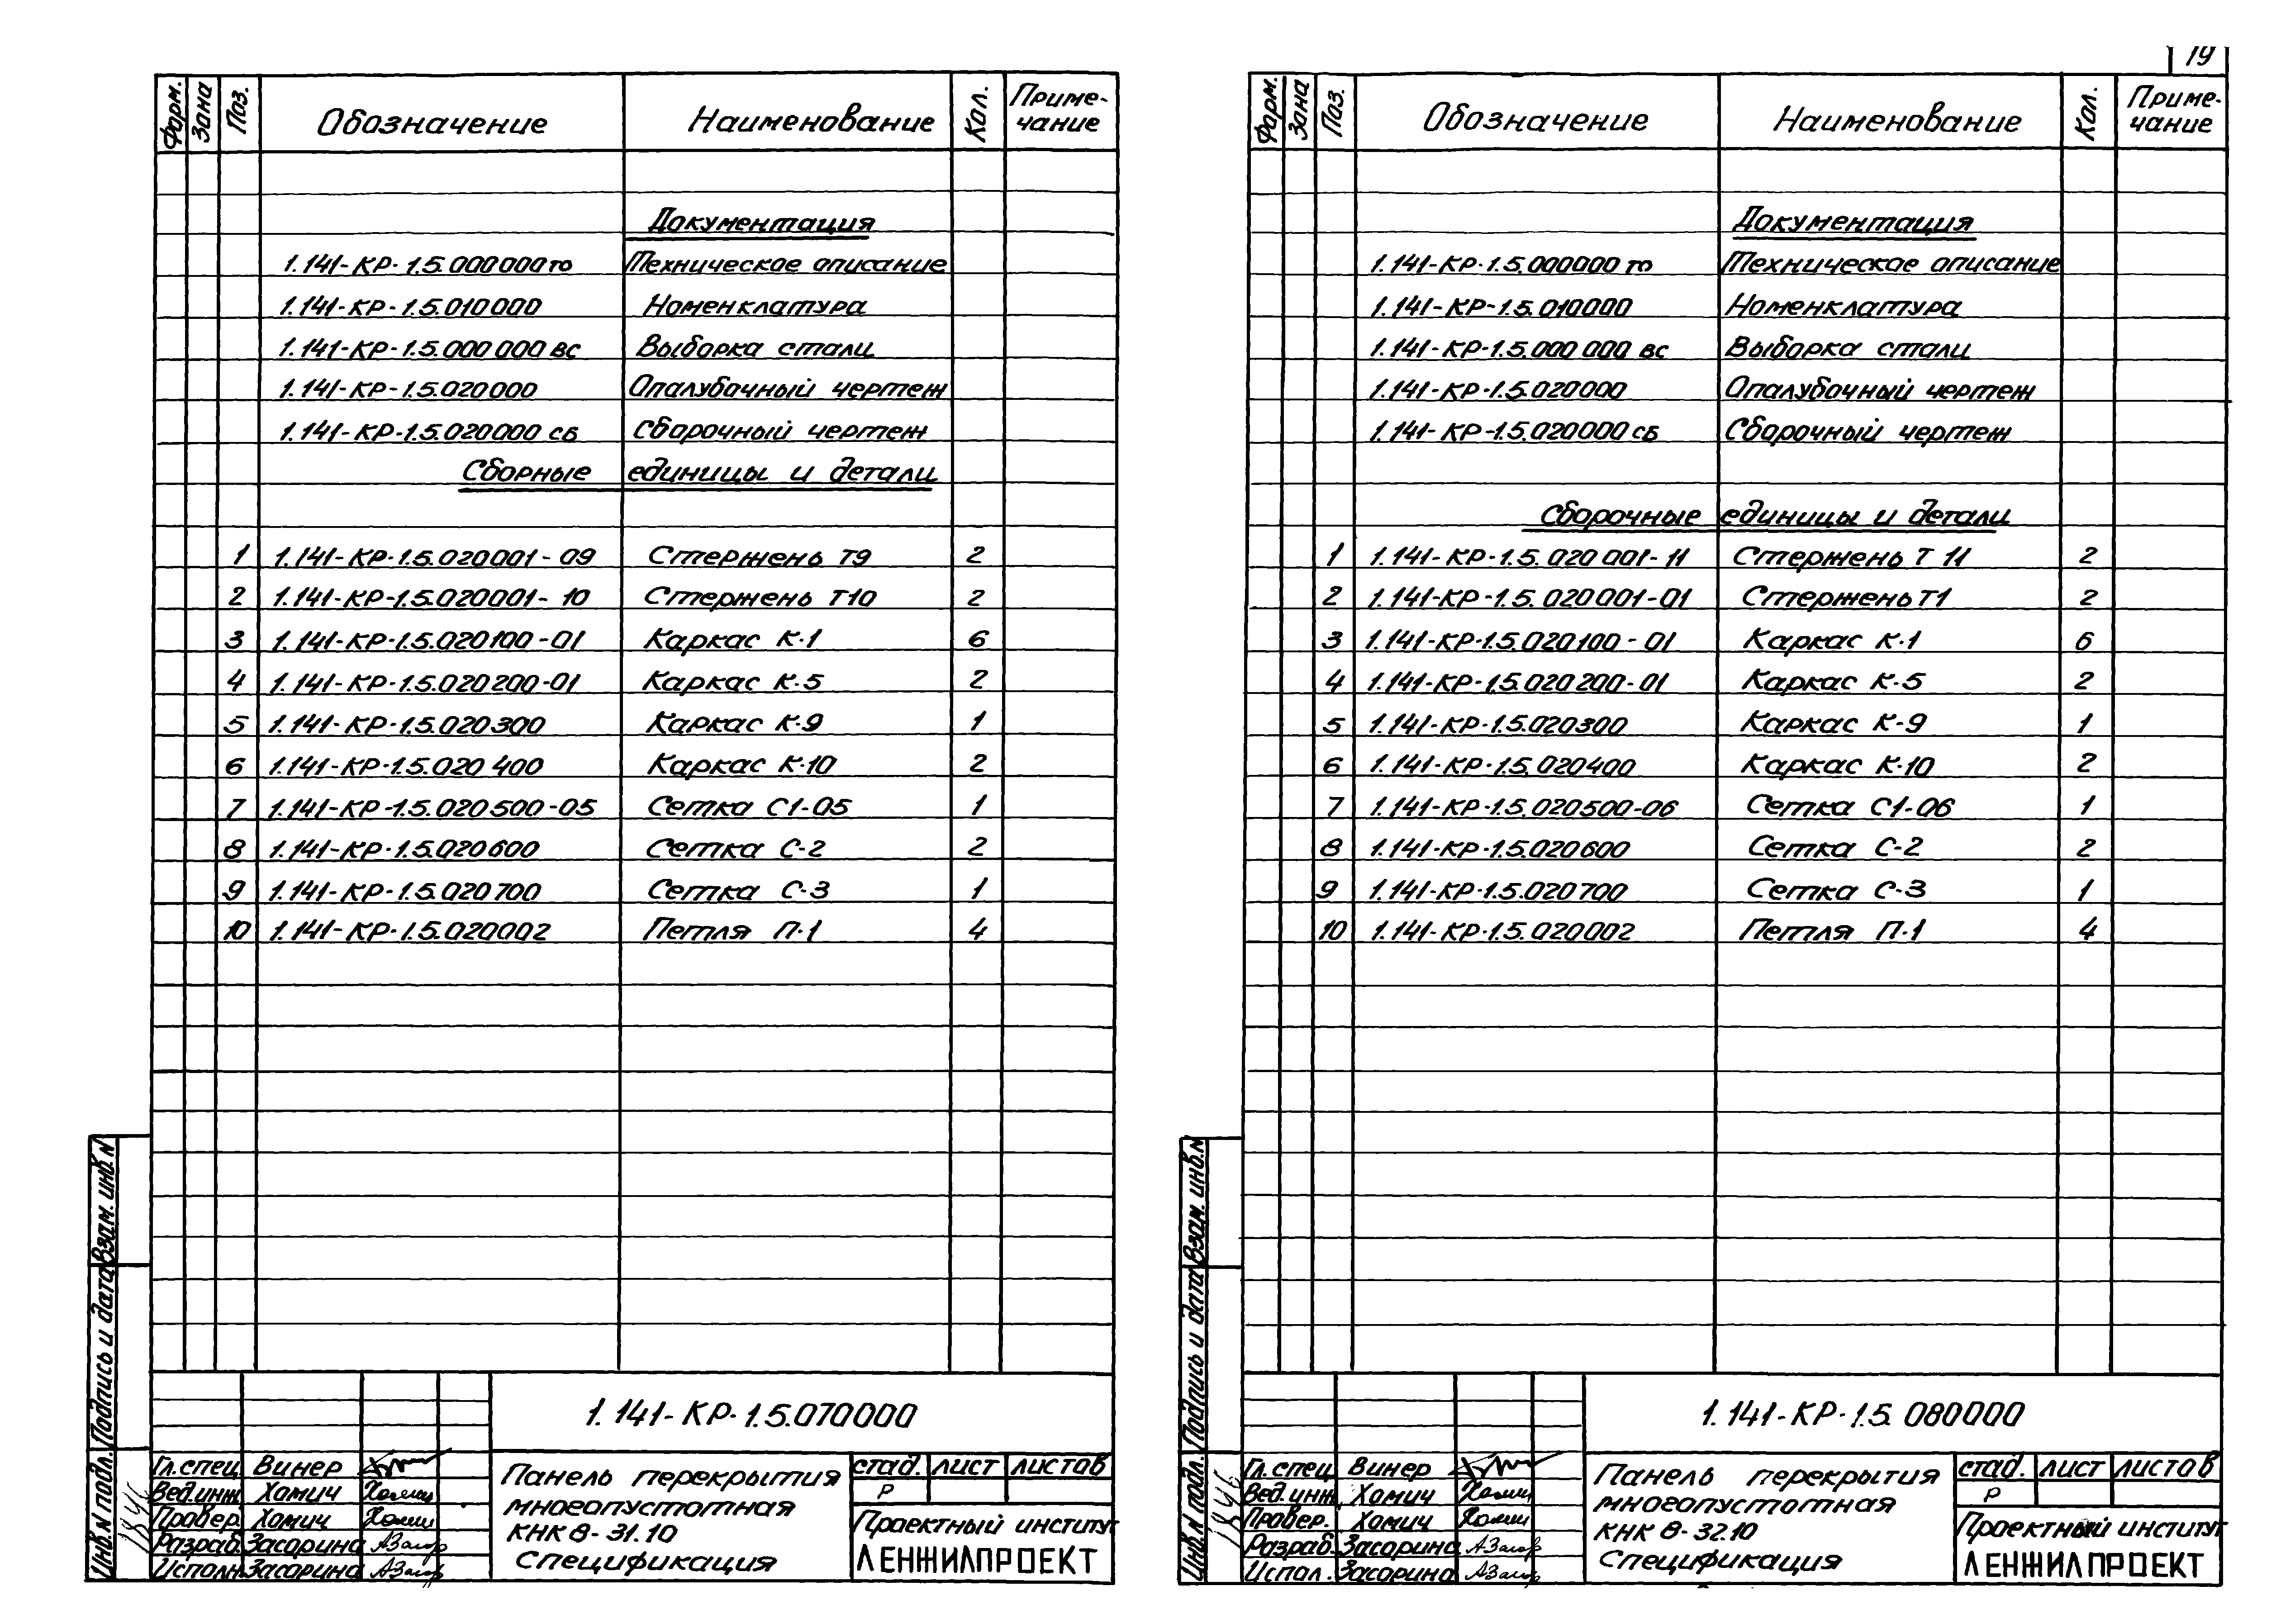 Форм. Зона Поз. Обозначение Наименование Кол. Приме-
чание
Документация
1.141-КР-1.5.000000 то Техническое описание
1.141-КР-1.5.010000 Номенклатура
1.141-КР-1.5.000000 вс Выборка стали
1.141-КР-1.5.020000 Опалубочный чертеж
1.141-КР-1.5.020000 сб Сборочный чертеж
Сборные единицы и детали
1 1.141-КР-1.5.020001-09 Стержень Т9 2
2 1.141-КР-1.5.020001-10 Стержень Т10 2
3 1.141-КР-1.5.020100-01 Каркас К-1 6
4 1.141-КР-1.5.020200-01 Каркас К-5 2
5 1.141-КР-1.5.020300 Каркас К-9 1
6 1.141-КР-1.5.020400 Каркас К-10 2
7 1.141-КР-1.5.020500-05 Сетка С1-05 1
8 1.141-КР-1.5.020600 Сетка С-2 2
9 1.141-КР-1.5.020700 Сетка С-3 1
10 1.141-КР-1.5.020002 Петля П-1 4
Взам. инв. N
Подпись и дата
Инв. N подл.
1.141-КР-1.5.070000
Гл. спец. Винер
Вед. инж. Хомич
Провер. Хомич
Разраб. Засорина
Исполн. Засорина
Панель перекрытия
многопустотная
КНК θ-31.10
Спецификация
стад. лист листов
Р
Проектный институт
ЛЕНЖИЛПРОЕКТ
19
Форм. Зона Поз. Обозначение Наименование Кол. Приме-
чание
Документация
1.141-КР-1.5.000000 то Техническое описание
1.141-КР-1.5.010000 Номенклатура
1.141-КР-1.5.000000 вс Выборка стали
1.141-КР-1.5.020000 Опалубочный чертеж
1.141-КР-1.5.020000 сб Сборочный чертеж
Сборочные единицы и детали
1 1.141-КР-1.5.020001-11 Стержень Т 11 2
2 1.141-КР-1.5.020001-01 Стержень Т1 2
3 1.141-КР-1.5.020100-01 Каркас К-1 6
4 1.141-КР-1.5.020200-01 Каркас К-5 2
5 1.141-КР-1.5.020300 Каркас К-9 1
6 1.141-КР-1.5.020400 Каркас К-10 2
7 1.141-КР-1.5.020500-06 Сетка С1-06 1
8 1.141-КР-1.5.020600 Сетка С-2 2
9 1.141-КР-1.5.020700 Сетка С-3 1
10 1.141-КР-1.5.020002 Петля П-1 4
Взам. инв. N
Подпись и дата
Инв. N подл.
1.141-КР-1.5.080000
Гл. спец. Винер
Вед. инж. Хомич
Провер. Хомич
Разраб. Засорина
Испол. Засорина
Панель перекрытия
многопустотная
КНК θ-32.10
Спецификация
стад. лист листов
Р
Проектный институт
ЛЕНЖИЛПРОЕКТ